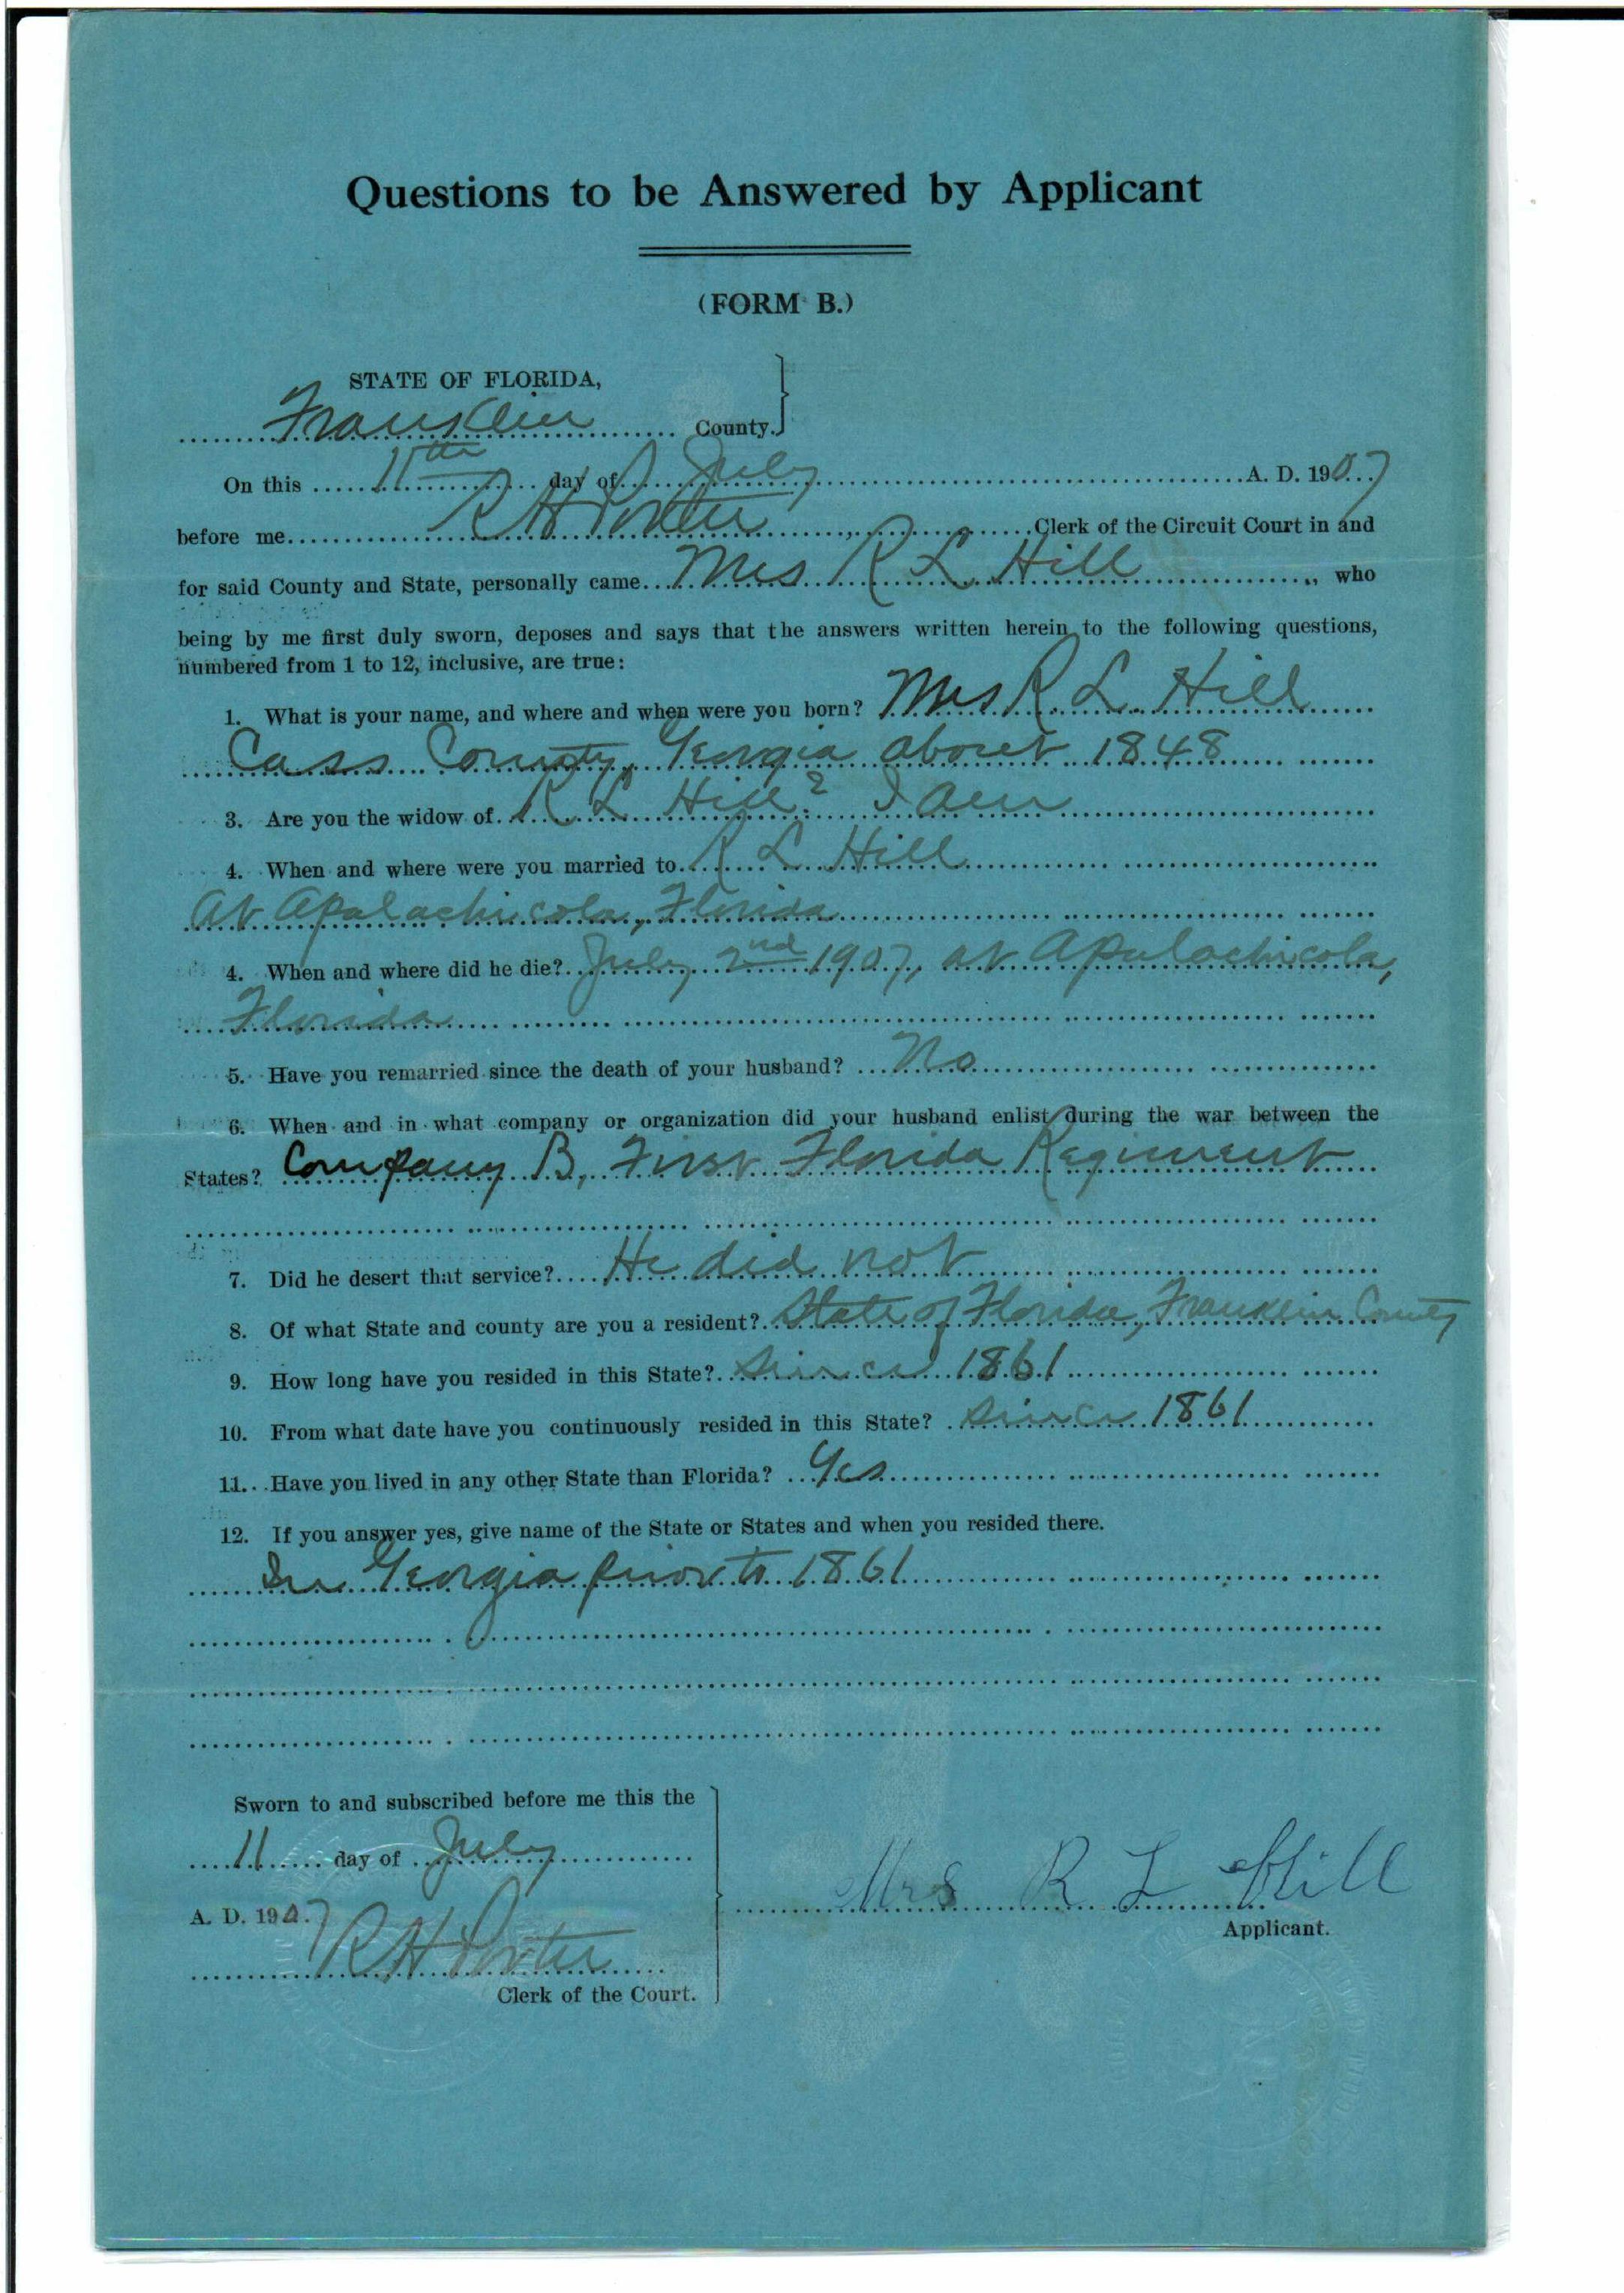 Questions to be Answered by Applicant
(FORM B.)
STATE OF FLORIDA,
Franklin County.
On this 11th day of July A. D. 1907
before me R H Porter, Clerk of the Circuit Court in and
for said County and State, personally came Mrs R L Hill, who
being by me first duly sworn, deposes and says that the answers written herein to the following questions,
numbered from 1 to 12, inclusive, are true:
1. What is your name, and where and when were you born? Mrs R. L. Hill
Cass County, Georgia about 1848
3. Are you the widow of R L Hill? I am
4. When and where were you married to R L Hill
At Apalachicola, Florida
4. When and where did he die? July 2nd 1907, at Apalachicola,
Florida
5. Have you remarried since the death of your husband? No
6. When and in what company or organization did your husband enlist during the war between the
States? Company B, First Florida Regiment
7. Did he desert that service? He did not
8. Of what State and county are you a resident? State of Florida, Franklin County
9. How long have you resided in this State? Since 1861
10. From what date have you continuously resided in this State? Since 1861
11. Have you lived in any other State than Florida? Yes
12. If you answer yes, give name of the State or States and when you resided there.
In Georgia prior to 1861
Sworn to and subscribed before me this the
11 day of July
A. D. 1907
R H Porter
Clerk of the Court.
Mrs R L Hill
Applicant.